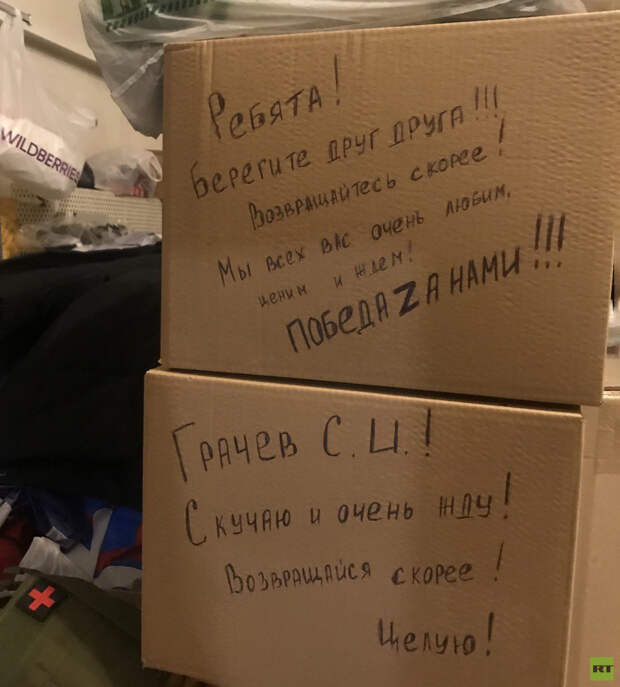 Ребята!
Берегите друг друга!!!
Возвращайтесь скорее!
Мы всех вас очень любим,
ценим и ждем!
ПОБЕДА ZА НАМИ!!!
Грачев С.И.!
Скучаю и очень жду!
Возвращайся скорее!
Целую!
WILDBERRIES
RT